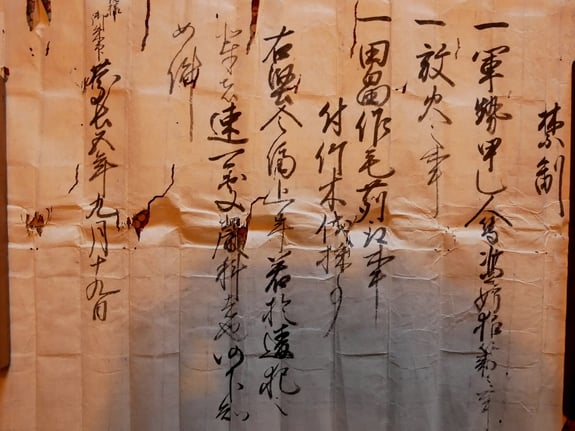 禁制
一軍勢甲乙人等濫妨狼藉之事
一放火之事
一田畠作毛苅取事
付竹木伐採事
右堅令停止畢若於違犯之
速可処厳科者也仍下知
如件
慶長五年九月十九日